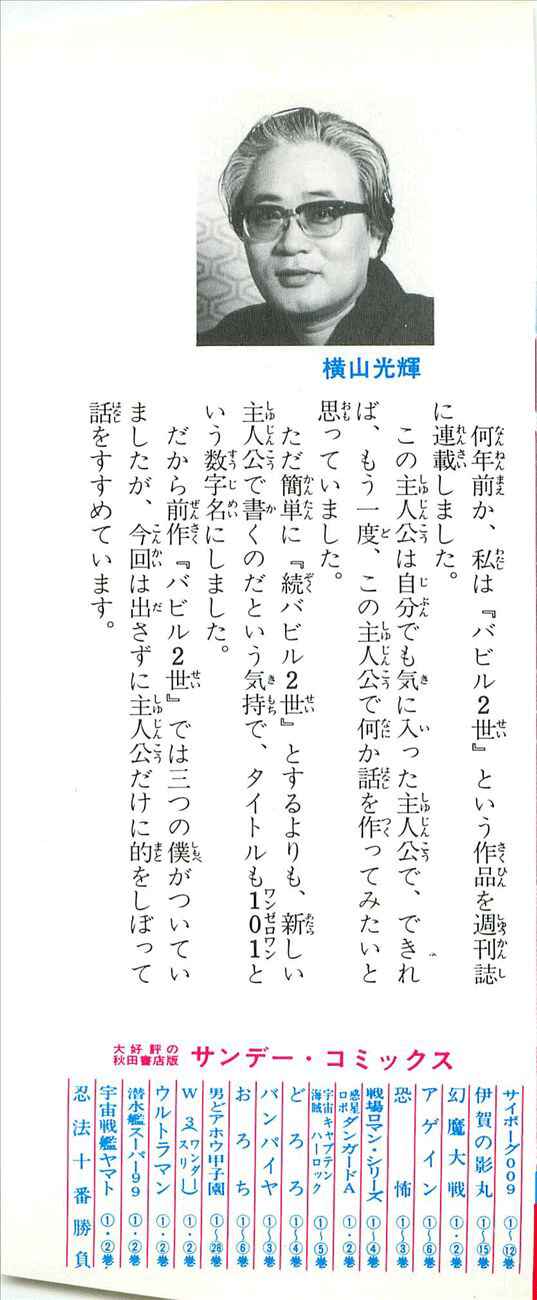 横山光輝
何年前か、私は『バビル2世』という作品を週刊誌
に連載しました。
この主人公は自分でも気に入った主人公で、できれ
ば、もう一度、この主人公で何か話を作ってみたいと
思っていました。
ただ簡単に『続バビル2世』とするよりも、新しい
主人公で書くのだという気持で、タイトルも101と
いう数字名にしました。
だから前作『バビル2世』では三つの僕がついてい
ましたが、今回は出さずに主人公だけに的をしぼって
話をすすめています。
大好評の
秋田書店版
サンデー・コミックス
サイボーグ009 ①〜⑫巻
伊賀の影丸 ①〜⑮巻
幻魔大戦 ①・②巻
アゲイン ①〜⑥巻
恐怖 ①〜③巻
戦場ロマン・シリーズ ①〜④巻
惑星ロボ ダンガードA ①・②巻
宇宙海賊 キャプテンハーロック ①〜⑤巻
どろろ ①〜④巻
バンパイヤ ①〜③巻
おろち ①〜⑥巻
男どアホウ甲子園 ①〜㉘巻
W3(ワンダースリー) ①・②巻
ウルトラマン ①・②巻
潜水艦スーパー99 ①・②巻
宇宙戦艦ヤマト ①・②巻
忍法十番勝負